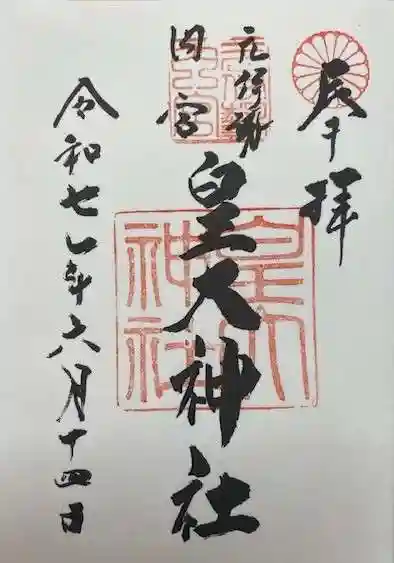 奉拝
元伊勢
内宮
皇大神社
令和七年六月十四日
元伊勢
内宮
皇大
神社